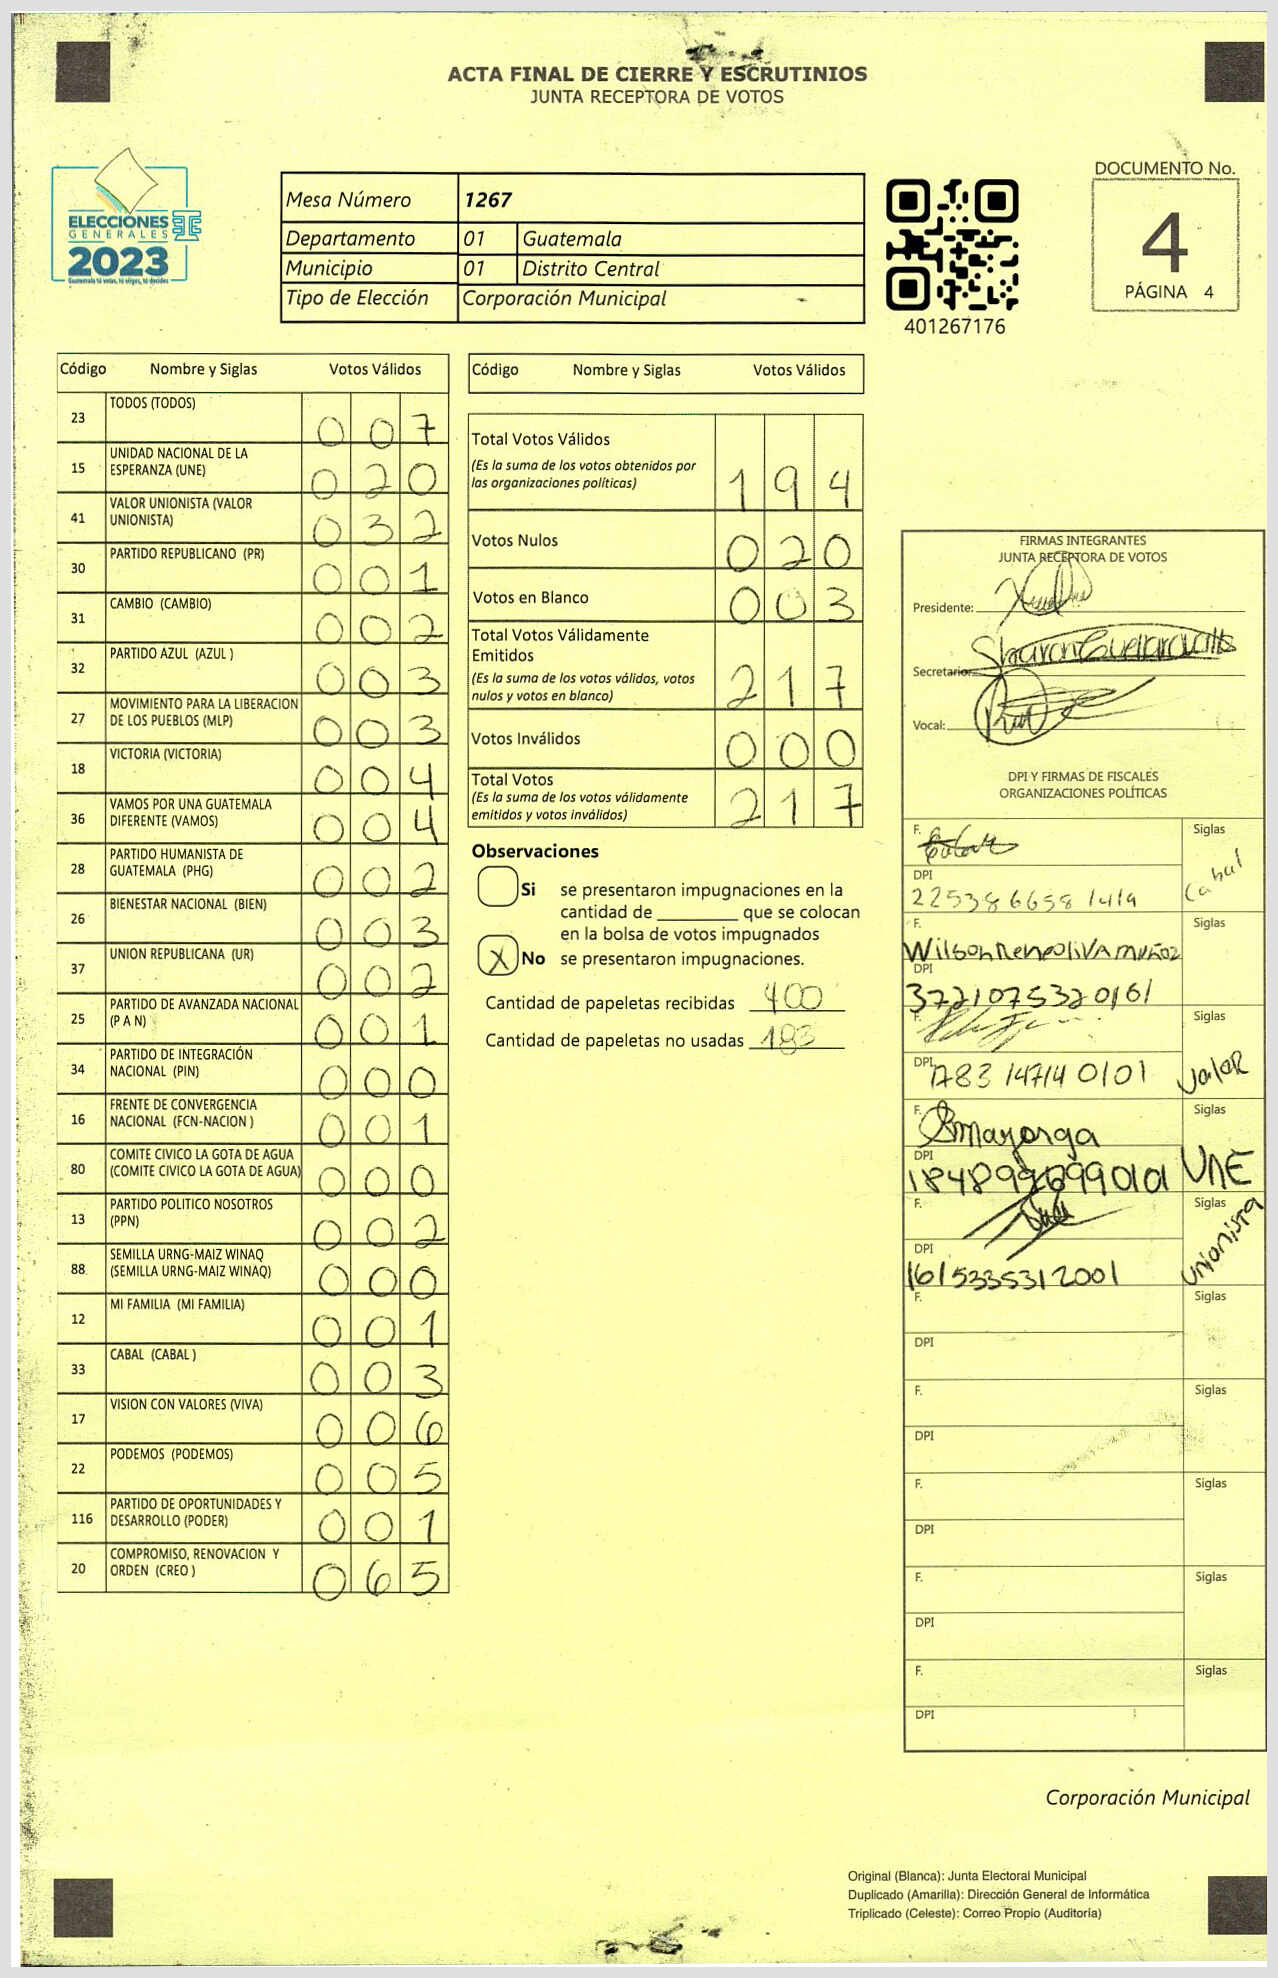 ACTA FINAL DE CIERRE Y ESCRUTINIOS
JUNTA RECEPTORA DE VOTOS
ELECCIONES
GENERALES
2023
Guatemala tú votas, tú eliges, tú decides
Mesa Número 1267
Departamento 01 Guatemala
Municipio 01 Distrito Central
Tipo de Elección Corporación Municipal
401267176
DOCUMENTO No.
4
PÁGINA 4
Código Nombre y Siglas Votos Válidos
23 TODOS (TODOS) 0 0 7
15 UNIDAD NACIONAL DE LA
ESPERANZA (UNE) 0 2 0
41 VALOR UNIONISTA (VALOR
UNIONISTA) 0 3 2
30 PARTIDO REPUBLICANO (PR) 0 0 1
31 CAMBIO (CAMBIO) 0 0 2
32 PARTIDO AZUL (AZUL ) 0 0 3
27 MOVIMIENTO PARA LA LIBERACION
DE LOS PUEBLOS (MLP) 0 0 3
18 VICTORIA (VICTORIA) 0 0 4
36 VAMOS POR UNA GUATEMALA
DIFERENTE (VAMOS) 0 0 4
28 PARTIDO HUMANISTA DE
GUATEMALA (PHG) 0 0 2
26 BIENESTAR NACIONAL (BIEN) 0 0 3
37 UNION REPUBLICANA (UR) 0 0 2
25 PARTIDO DE AVANZADA NACIONAL
(P A N) 0 0 1
34 PARTIDO DE INTEGRACIÓN
NACIONAL (PIN) 0 0 0
16 FRENTE DE CONVERGENCIA
NACIONAL (FCN-NACION ) 0 0 1
80 COMITE CIVICO LA GOTA DE AGUA
(COMITE CIVICO LA GOTA DE AGUA) 0 0 0
13 PARTIDO POLITICO NOSOTROS
(PPN) 0 0 2
88 SEMILLA URNG-MAIZ WINAQ
(SEMILLA URNG-MAIZ WINAQ) 0 0 0
12 MI FAMILIA (MI FAMILIA) 0 0 1
33 CABAL (CABAL ) 0 0 3
17 VISION CON VALORES (VIVA) 0 0 6
22 PODEMOS (PODEMOS) 0 0 5
116 PARTIDO DE OPORTUNIDADES Y
DESARROLLO (PODER) 0 0 1
20 COMPROMISO, RENOVACION Y
ORDEN (CREO ) 0 6 5
Código Nombre y Siglas Votos Válidos
Total Votos Válidos
(Es la suma de los votos obtenidos por
las organizaciones políticas) 1 9 4
Votos Nulos 0 2 0
Votos en Blanco 0 0 3
Total Votos Válidamente
Emitidos
(Es la suma de los votos válidos, votos
nulos y votos en blanco) 2 1 7
Votos Inválidos 0 0 0
Total Votos
(Es la suma de los votos válidamente
emitidos y votos inválidos) 2 1 7
Observaciones
Si se presentaron impugnaciones en la
cantidad de ________ que se colocan
en la bolsa de votos impugnados
X No se presentaron impugnaciones.
Cantidad de papeletas recibidas 400
Cantidad de papeletas no usadas 183
FIRMAS INTEGRANTES
JUNTA RECEPTORA DE VOTOS
Presidente:
Secretario:
Vocal:
DPI Y FIRMAS DE FISCALES
ORGANIZACIONES POLÍTICAS
F. Siglas
Cabal
DPI
F. Siglas
Wilson Rene oliVA muñoz
DPI
3721075320161
F. Siglas
Valor
DPI
F. Siglas
Smayorga
DPI
UNE
F. Siglas
unionista
DPI
1615335312001
F. Siglas
DPI
F. Siglas
DPI
F. Siglas
DPI
F. Siglas
DPI
F. Siglas
DPI
Corporación Municipal
Original (Blanca): Junta Electoral Municipal
Duplicado (Amarilla): Dirección General de Informática
Triplicado (Celeste): Correo Propio (Auditoría)